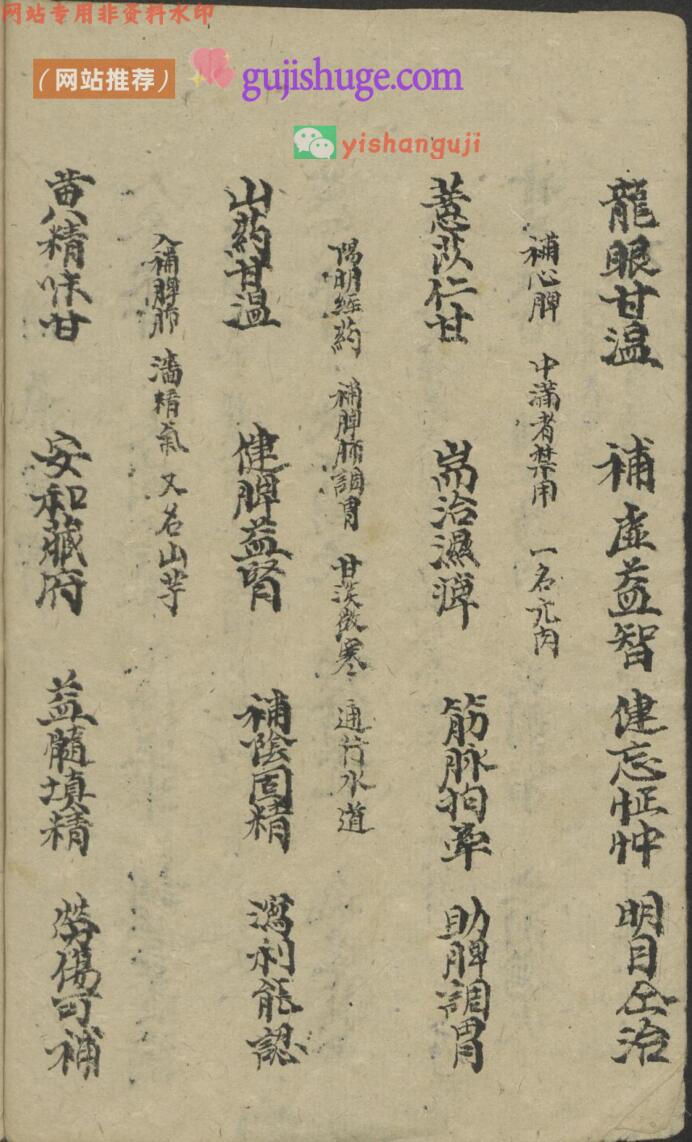 网站专用非资料水印
（网站推荐）
gujishuge.com
yishanguji
龍眼甘溫 補虛益智 健忘怔忡 明目 治
補心脾 中滿者禁用 一名元肉
薏苡仁甘 耑治濕痺 筋脉拘挛 助脾調胃
陽明經药 補脾肺調胃 甘淡微寒 通行水道
山药甘溫 健脾益腎 補陰固精 瀉利能
入補脾肺 濇精氣 又名山芋
黄精味甘 安和藏府 益髓填精 勞傷可補